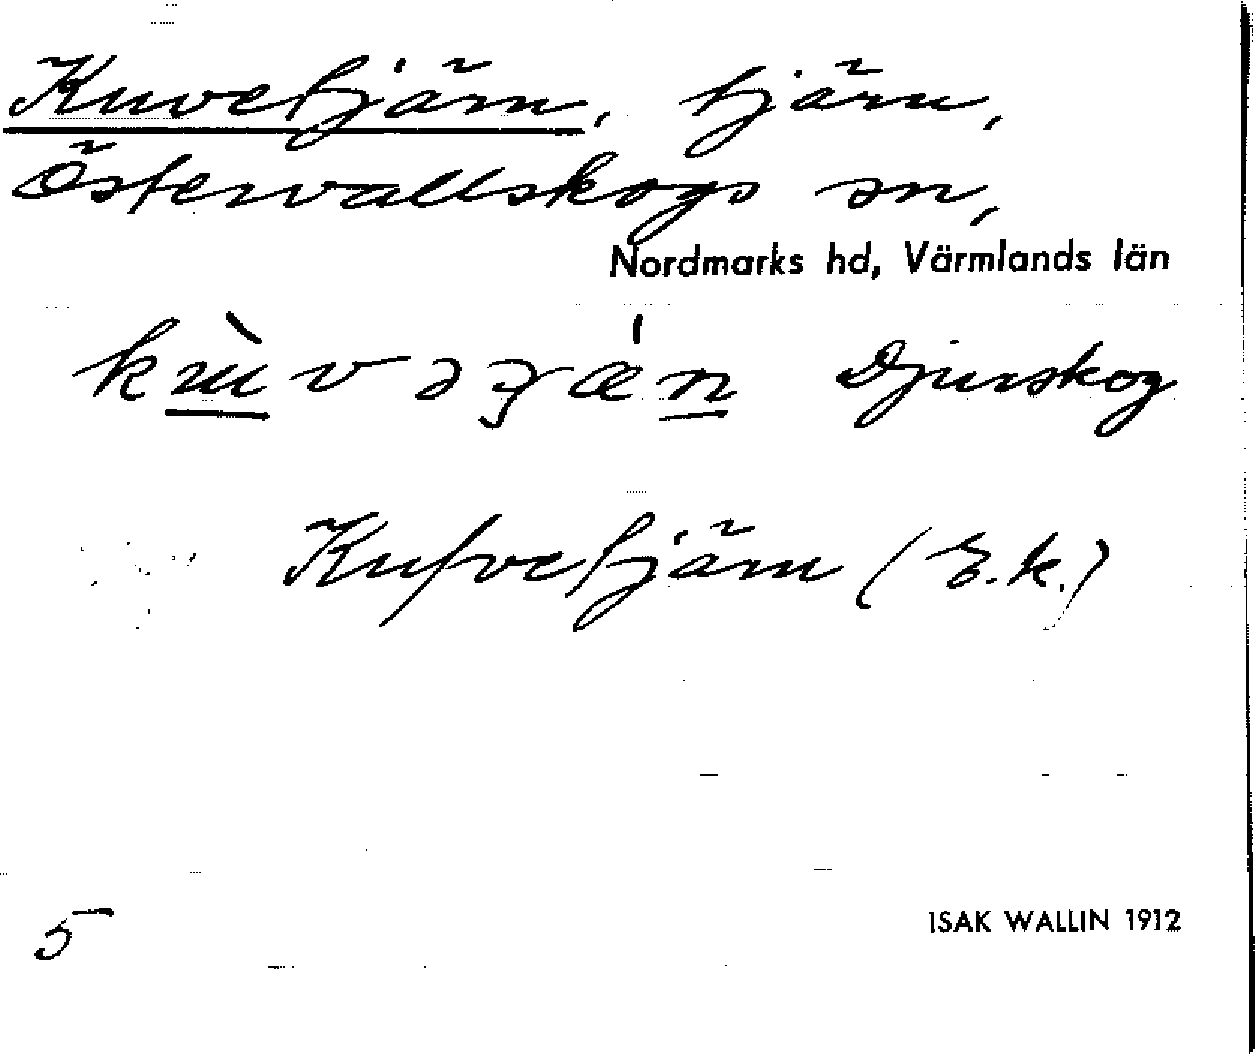 Kuvetjärn, tjärn,
Östervallskogs sn,
Nordmarks hd, Värmlands län
Djurskog
Kufvetjärn (E.k.)
5
ISAK WALLIN 1912